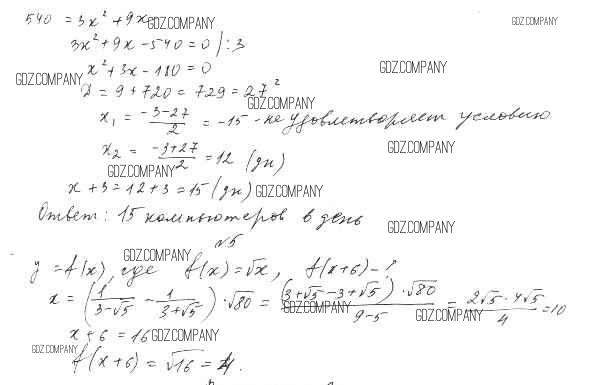 540 = 3x² + 9x GDZ.COMPANY GDZ.COMPANY
3x² + 9x - 540 = 0 /:3
x² + 3x - 180 = 0 GDZ.COMPANY
GDZ.COMPANY
D = 9 + 720 = 729 = 27²
GDZ.COMPANY
x₁ = (-3-27)/2 = -15 - не удовлетворяет условию
x₂ = (-3+27)/2 = 12 (дн) GDZ.COMPANY
GDZ.COMPANY
x + 3 = 12 + 3 = 15 (дн) GDZ.COMPANY
Ответ: 15 компьютеров в день GDZ.COMPANY
№5
GDZ.COMPANY
y = f(x), где f(x) = √x, f(x+6) - ?
x = (1/(3-√5) - 1/(3+√5)) · √80 = ((3+√5-3+√5) · √80)/(9-5) = (2√5 · 4√5)/4 = 10
GDZ.COMPANY GDZ.COMPANY
x + 6 = 16 GDZ.COMPANY
GDZ.COMPANY
f(x+6) = √16 = 4.